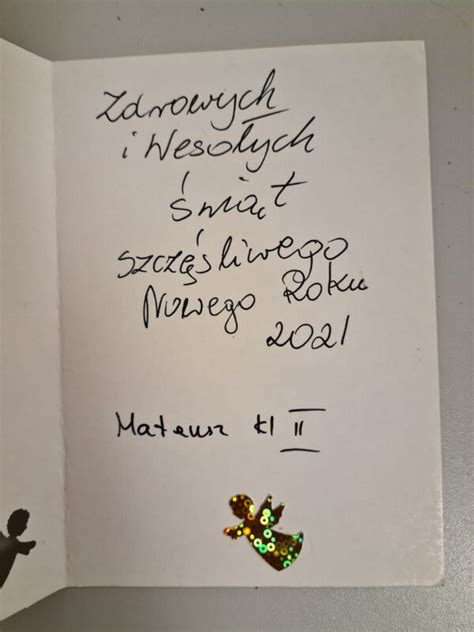 Zdrowych
i Wesołych
Świąt
szczęśliwego
Nowego Roku
2021
Mateusz kl II